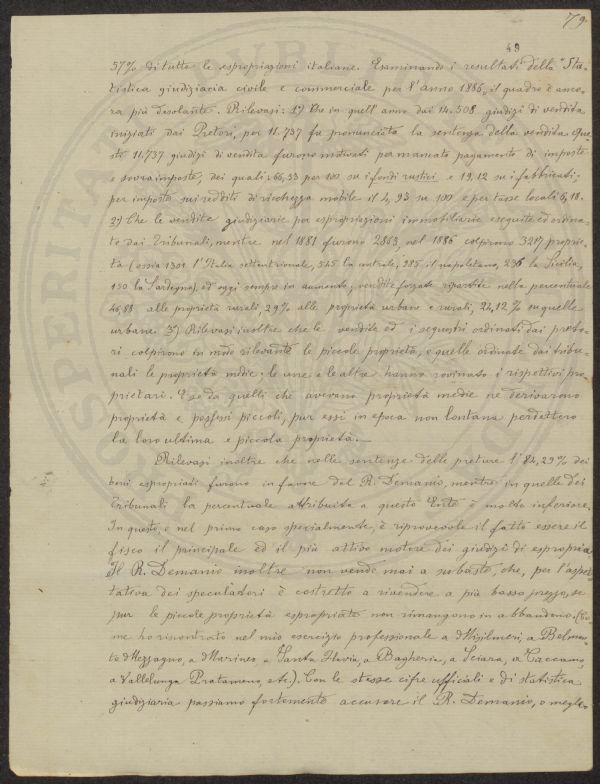 79.
49
57% di tutte le espropriazioni italiane. Esaminando i resultati della "Sta-
tistica giudiziaria civile e commerciale per l'anno 1886, il quadro è anco-
ra più desolante. Rilevasi: 1º) Che in quell'anno dai 14.508 giudizî di vendita
iniziati dai Pretori, per 11.737 fu pronunciata la sentenza della vendita. Que
sti 11.737 giudizî di vendita furono motivati per mancato pagamento di imposte
e sovraimposte, dei quali: 66,33 per 100 su i fondi rustici e 19,12 su i fabbricati;
per imposte sui redditi di ricchezza mobile il 4,93 su 100 e per tasse locali 6,18.
2º) Che le vendite giudiziarie per espropriazioni immobiliarie eseguite ed ordina-
te dai Tribunali, mentre nel 1881 furono 2863, nel 1886 colpirono 3217 proprie-
tà (ossia 1301 l'Italia settentrionale, 545 la centrale, 985 il napoletano, 236 la Sicilia,
150 la Sardegna), ed oggi sempre in aumento; vendite forzate ripartite nella percentuale
46,88 alle proprietà rurali, 29% alle proprietà urbane e rurali, 24,12 % su quelle
urbane. 3º) Rilevasi inoltre che le vendite ed i sequestri ordinati dai preto-
ri colpirono in modo rilevante le piccole proprietà, e quelle ordinate dai tribu-
nali le proprietà medie: le une e le altre hanno rovinato i rispettivi pro
prietari. E se da quelli che avevano proprietà medie ne derivarono
proprietà e possessi piccoli, pur essi in epoca non lontana perdettero
la loro ultima e piccola proprietà.—
Rilevasi inoltre che nelle sentenze delle preture l'84,29% dei
beni espropriati furono in favore del R. Demanio, mentre in quelle dei
Tribunali la percentuale attribuita a questo Ente è molto inferiore.
In questo, e nel primo caso specialmente, è riprovevole il fatto essere il
fisco il principale ed il più attivo motore dei giudizî di espropria
Il R. Demanio inoltre non vende mai a subasta, che, per l'aspet
tativa dei speculatori è costretto a rivendere a più basso prezzo, se
pur le piccole proprietà espropriate non rimangono in abbandono. (Co-
me ho riscontrato nel mio esercizio professionale a Misilmeri, a Belmon-
te Mezzagno, a Marineo a Santa Flavia, a Bagheria, a Sciara, a Caccamo,
a Vallelunga Pratameno, etc.). Con le stesse cifre ufficiali e di statistica
giudiziaria possiamo fortemente accusare il R. Demanio, o meglio